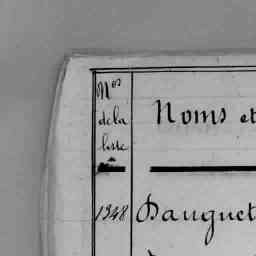 Nos
de la
liste
Noms et
1948 Dauguet